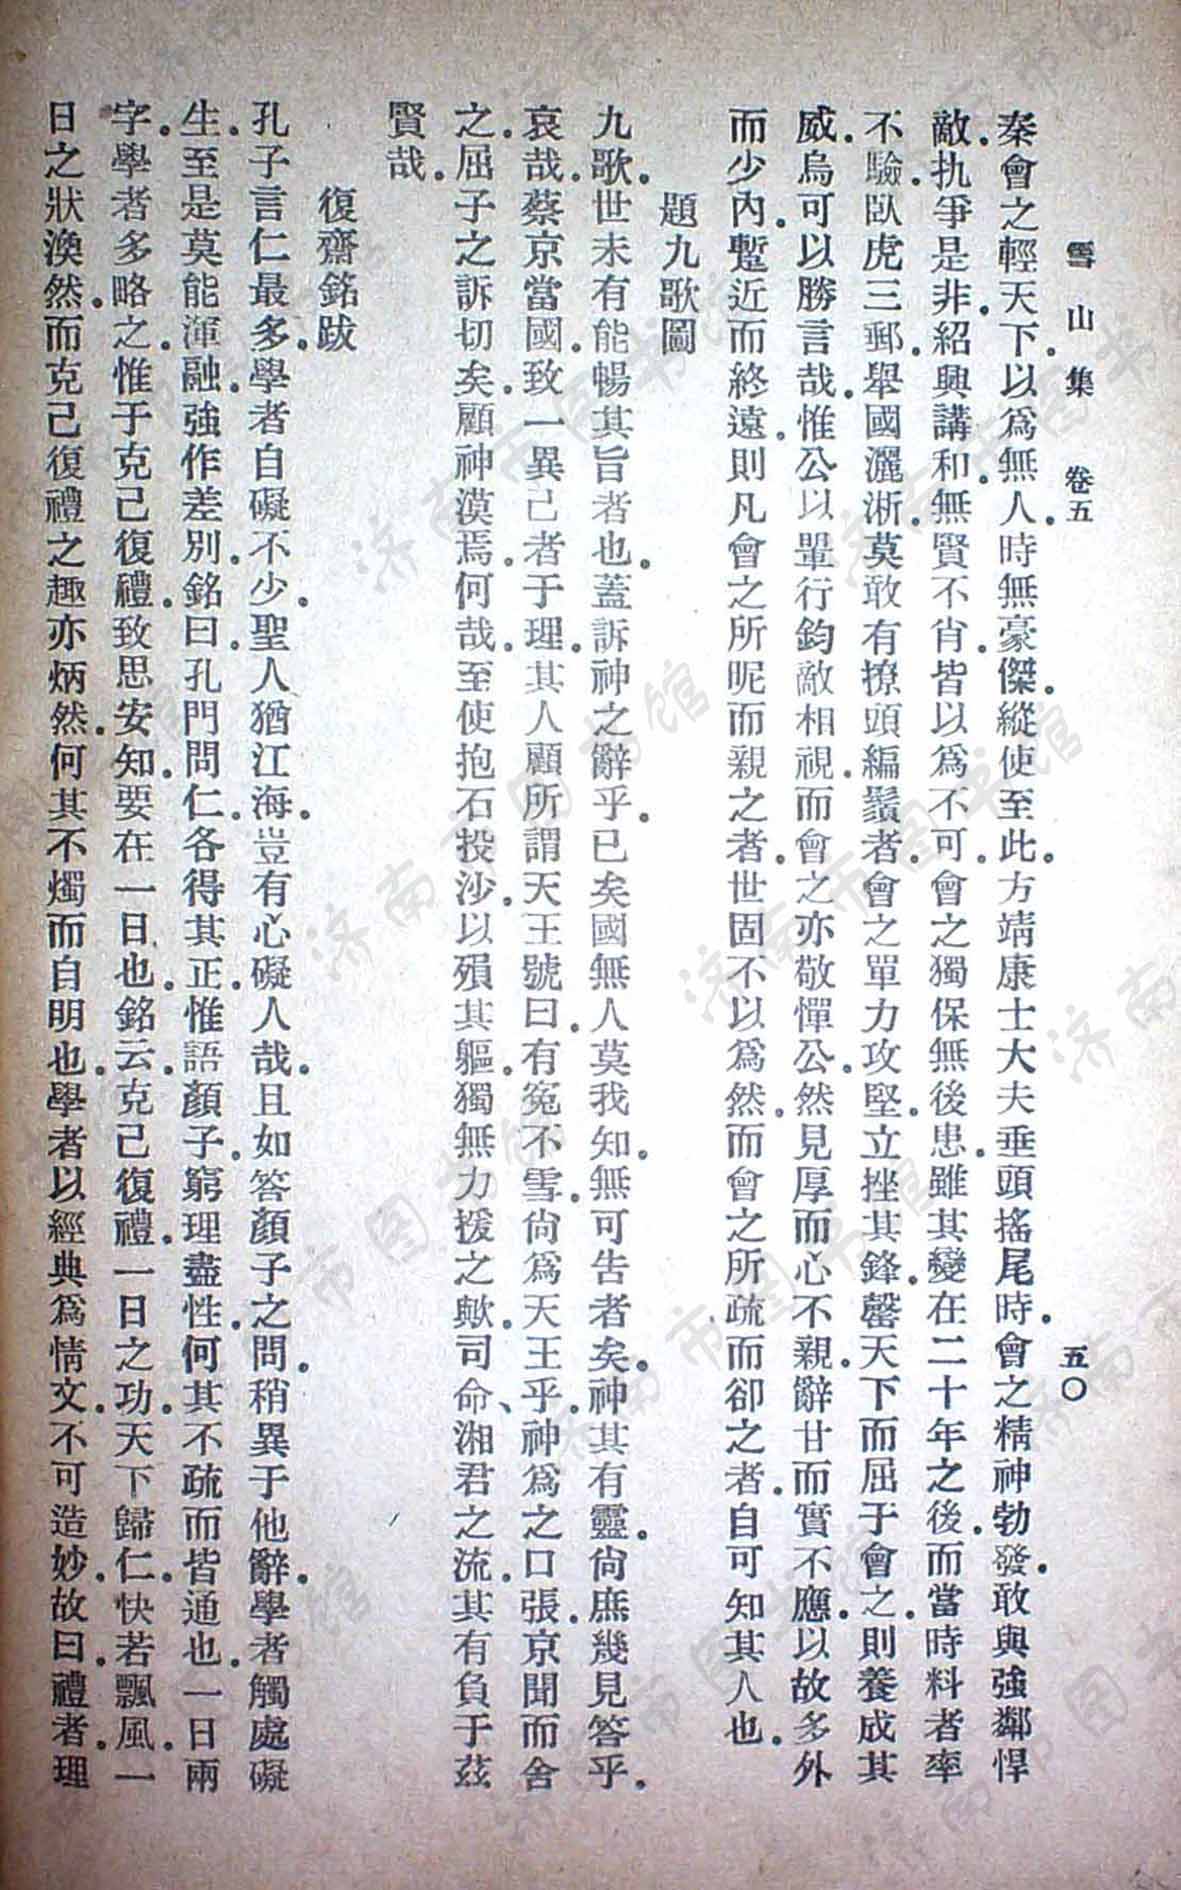 雪山集　卷五　五〇
秦會之輕天下。以爲無人。時無豪傑。縱使至此。方靖康士大夫垂頭搖尾時。會之精神勃發。敢與強鄰悍
敵。執爭是非。紹興講和。無賢不肖。皆以爲不可。會之獨保無後患。雖其變在二十年之後。而當時料者率
不驗。臥虎三郵。舉國灑淅。莫敢有撩頭編鬚者。會之單力攻堅。立挫其鋒。罄天下而屈于會之。則養成其
威。烏可以勝言哉。惟公以單行鈞敵相視。而會之亦敬憚公。然見厚而心不親。辭甘而實不應。以故多外
而少內。暫近而終遠。則凡會之所昵而親之者。世固不以爲然。而會之所疏而卻之者。自可知其人也。
題九歌圖
九歌。世未有能暢其旨者也。蓋訴神之辭乎。已矣國無人莫我知。無可告者矣。神其有靈。尙庶幾見答乎。
哀哉。蔡京當國。致一異己者于理。其人顧所謂天王號曰。有冤不雪。尙爲天王乎。神爲之口張。京聞而舍
之。屈子之訴切矣。顧神漠焉。何哉。至使抱石投沙。以殞其軀。獨無力援之歟。司命、湘君之流。其有負于茲
賢哉。
復齋銘跋
孔子言仁最多。學者自礙不少。聖人猶江海。豈有心礙人哉。且如答顏子之問。稍異于他辭。學者觸處礙
生。至是莫能渾融。強作差別。銘曰。孔門問仁。各得其正。惟語顏子。窮理盡性。何其不疏而皆通也。一日兩
字。學者多略之。惟于克己復禮。致思安知。要在一日也。銘云。克己復禮。一日之功。天下歸仁。快若飄風。一
日之狀渙然。而克己復禮之趣亦炳然。何其不燭而自明也。學者以經典爲情文。不可造妙。故曰。禮者。理